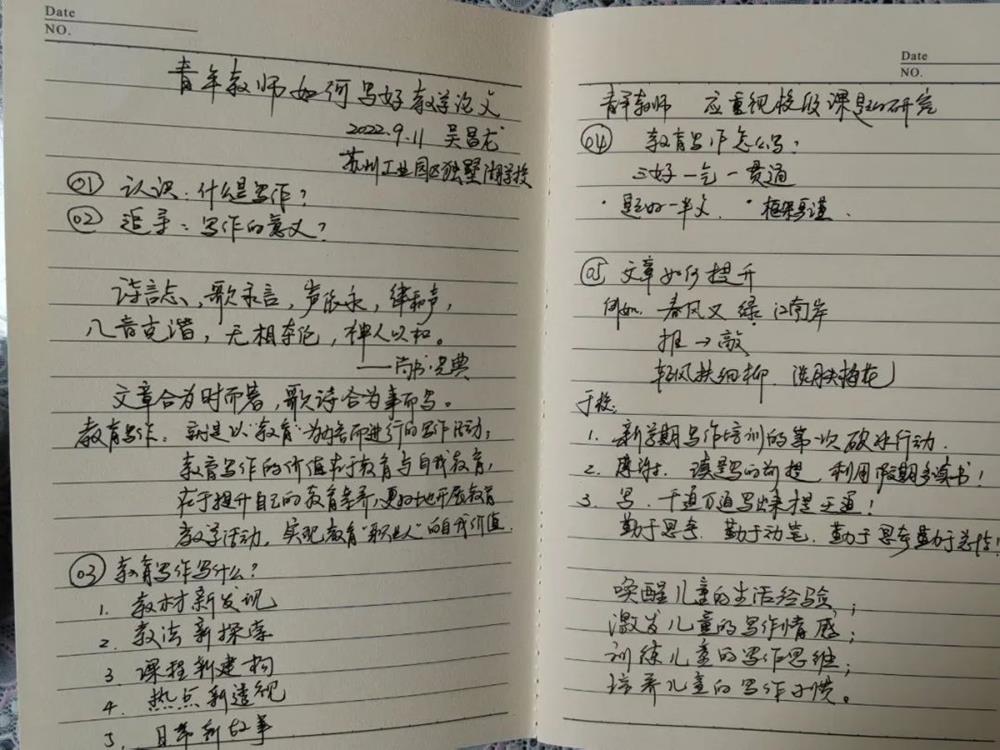 Date
NO.
青年教师如何写好教学论文
2022.9.11 吴昌龙
苏州工业园区独墅湖学校
01 认识：什么是写作？
02 追寻：写作的意义？
诗言志，歌永言，声依永，律和声，
八音克谐，无相夺伦，神人以和。
——尚书·尧典
文章合为时而著，歌诗合为事而写。
教育写作：就是以"教育"为内容而进行的写作活动；
教育写作的价值在于教育与自我教育，
在于提升自己的教育素养，更好地开展教育
教学活动，实现教育"职业人"的自我价值.
03 教育写作写什么？
1. 教材新发现
2. 教法新探索
3 课程新建构
4. 热点新透视
5. 日常新故事
Date
NO.
青年教师 应重视校级课题的研究
04 教育写作怎么写？
三好一气一贯通
·题好一半文 ·框架严谨.
05 文章如何提升
例如. 春风又绿江南岸
推→敲
轻风扶细柳 淡月失梅花
于校：
1. 新学期写作培训的第一次破冰行动.
2. 读是写的前提 利用假期多读书！
3. 写. 千通万通写出来提王通！
勤于思考. 勤于动笔. 勤于思考勤于总结！
唤醒儿童的生活经验；
激发儿童的写作情感；
训练儿童的写作思维；
培养儿童的写作习惯。